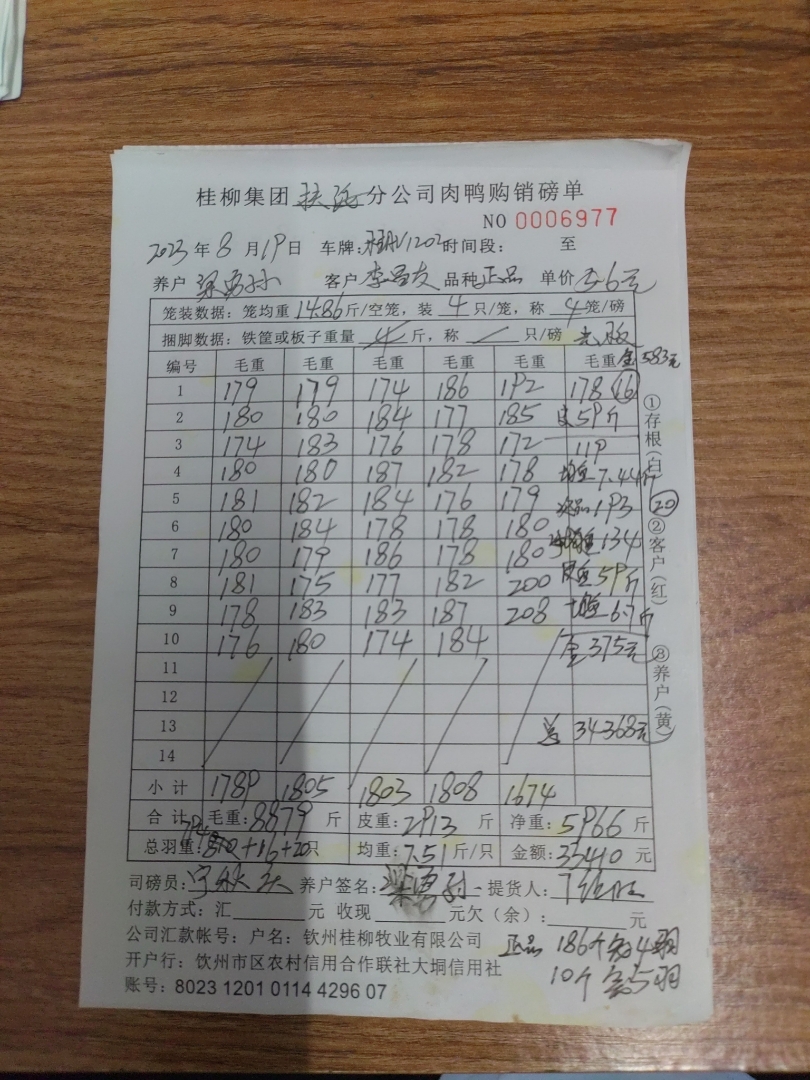 桂柳集团 分公司肉鸭购销磅单
NO 0006977
2023 年 8 月 19 日 车牌: 1202 时间段: 至
养户 客户 李 友 品种 正品 单价 5.6元
笼装数据: 笼均重 14.86 斤/空笼, 装 4 只/笼, 称 4 笼/磅
捆脚数据: 铁筐或板子重量 斤, 称 只/磅
编号 毛重 毛重 毛重 毛重 毛重 毛重 583元
1 179 179 174 186 192 178 16
2 180 180 184 177 185 皮59斤
3 174 183 176 178 172 119
4 180 180 187 182 178 均重7.44斤
5 181 182 184 176 179 次品193 20
6 180 184 178 178 180 134
7 180 179 186 178 180 皮重59斤
8 181 175 177 182 200 均重6.7斤
9 178 183 183 187 208
10 176 180 174 184 金375元
11
12
13 总 34368元
14
小计 1789 1805 1803 1808 1674
合计 毛重: 8879 斤 皮重: 2913 斤 净重: 5966 斤
总羽重: 794 +16+20只 均重: 7.51 斤/只 金额: 33410 元
司磅员: 养户签名: 提货人:
付款方式: 汇 元 收现 元欠(余): 元
公司汇款帐号: 户名: 钦州桂柳牧业有限公司 正品 186个 4羽
开户行: 饮州市区农村信用合作联社大垌信用社 10个 5羽
账号: 8023 1201 0114 4296 07
①存根(白) ②客户(红) ③养户(黄)